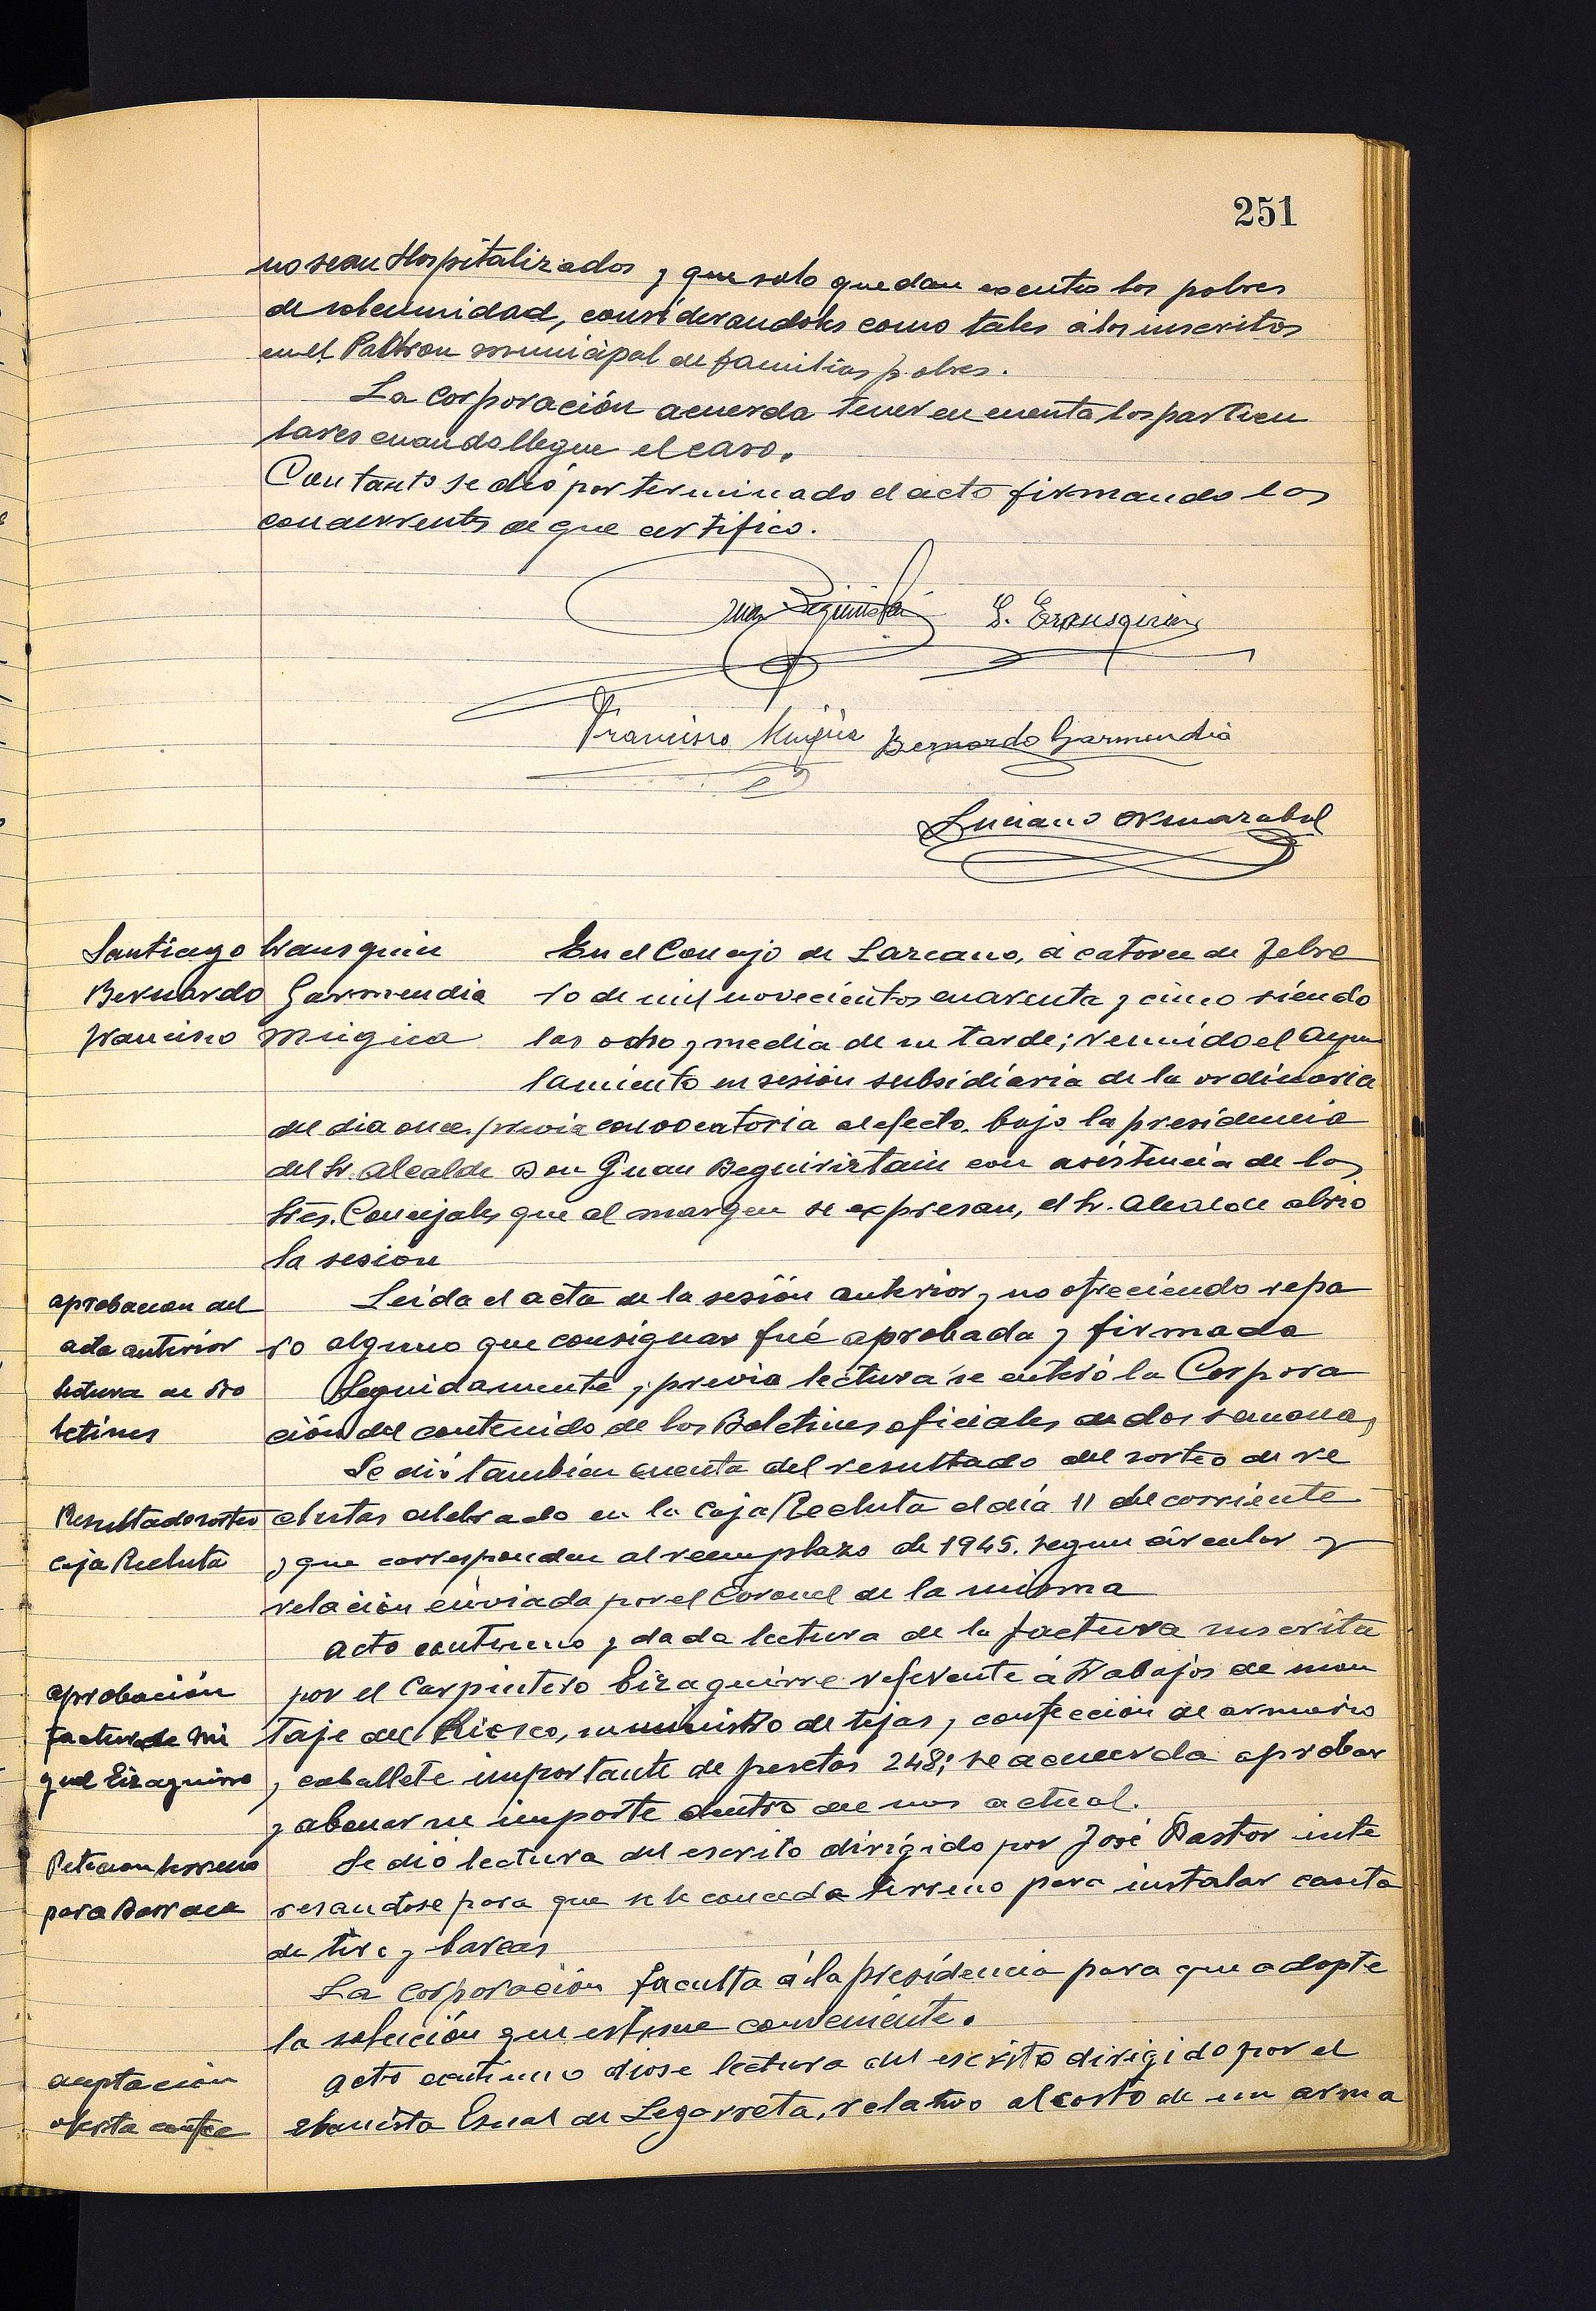 251
no sean Hospitalizados y que solo quedan exentos los pobres
de solemnidad, considerandoles como tales á los inscritos
en el Padron municipal de familias pobres.
La Corporación acuerda tener en cuenta los particu
lares cuando llegue el caso.
Con tanto se dió por terminado el acto firmando los
concurrentes de que certifico.
Juan Beguiristain S. Erausquin
Francisco Mugica Bernardo Garmendia
Luciano
Santiago Erausquin
Bernardo Garmendia
Francisco Mugica
En el Concejo de Lazcano, á catorce de Febre
ro de mil novecientos cuarenta y cinco siendo
las ocho y media de su tarde; reunido el Ayun
tamiento en sesión subsidiaria de la ordinaria
del dia once, previa convocatoria al efecto, bajo la presidencia
del Sr. Alcalde Don Juan Beguiristain con asistencia de los
Sres. Concejales que al margen se expresan, el Sr. Alcalde abrio
la sesión
aprobacion del
acta anterior
Leida el acta de la sesión anterior y no ofreciendo repa
ro alguno que consignar fué aprobada y firmada
lectura de Bo
letines
Seguidamente y previa lectura se enteró la Corpora
ción del contenido de los Boletines oficiales de dos semanas
Se dió tambien cuenta del resultado del sorteo de re
Resultado sorteo
caja Recluta
clutas celebrado en la Caja Recluta el día 11 del corriente
y que corresponden al reemplazo de 1945. segun circular y
relación enviada por el Coronel de la misma
Acto contínuo y dada lectura de la factura suscrita
aprobación
factura de Mi
guel Eizaguirre
por el Carpintero Eizaguirre referente á trabajos de mon
taje del Kiosco, suministro de tejas, confección de armario
y caballete importante de pesetas 248; se acuerda aprobar
y abonar su importe dentro del mes actual.
Peticion terreno
para Barraca
Se dió lectura del escrito dirigido por José Pastor inte
resandose para que se le conceda terreno para instalar caseta
de tiro y barcas
La Corporación faculta á la presidencia para que adopte
la solución que estime conveniente.
aceptación
oferta confec
Acto contínuo diose lectura del escrito dirigido por el
ebanista Esnal de Legorreta, relativo al costo de un arma